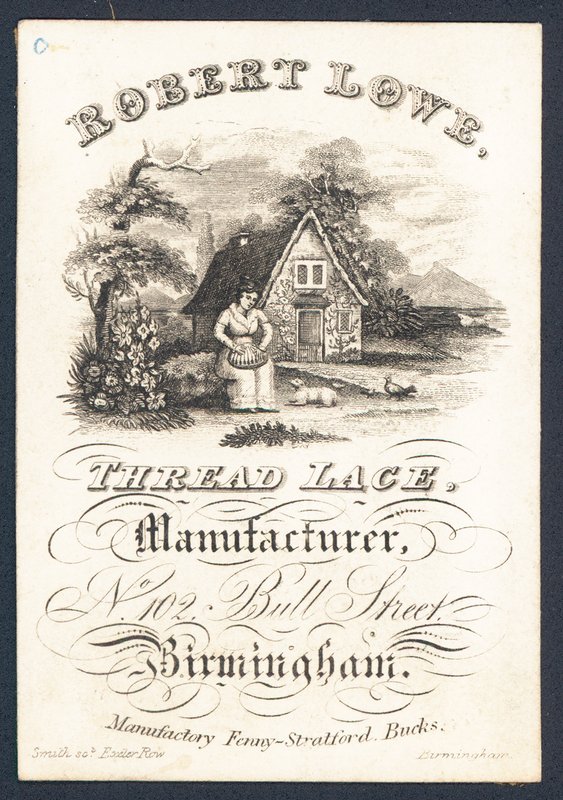 ROBERT LOWE,
THREAD LACE,
Manufacturer,
No. 102. Bull Street.
Birmingham.
Manufactory Fenny-Stratford. Bucks.
Smith sct. Exeter Row
Birmingham.